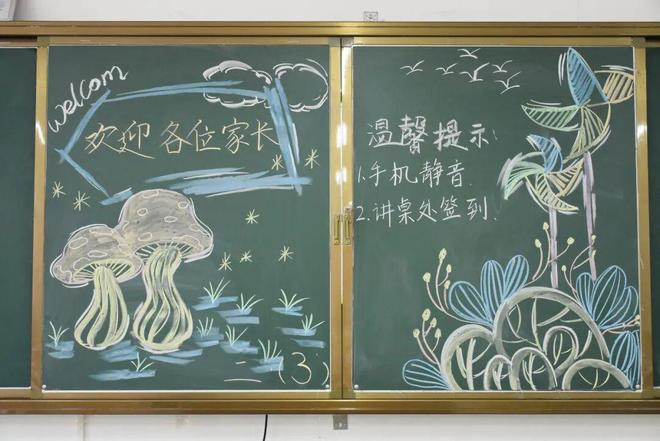 welcom
欢迎 各位家长
(3)
温馨提示
1.手机静音
2.讲桌处签到.